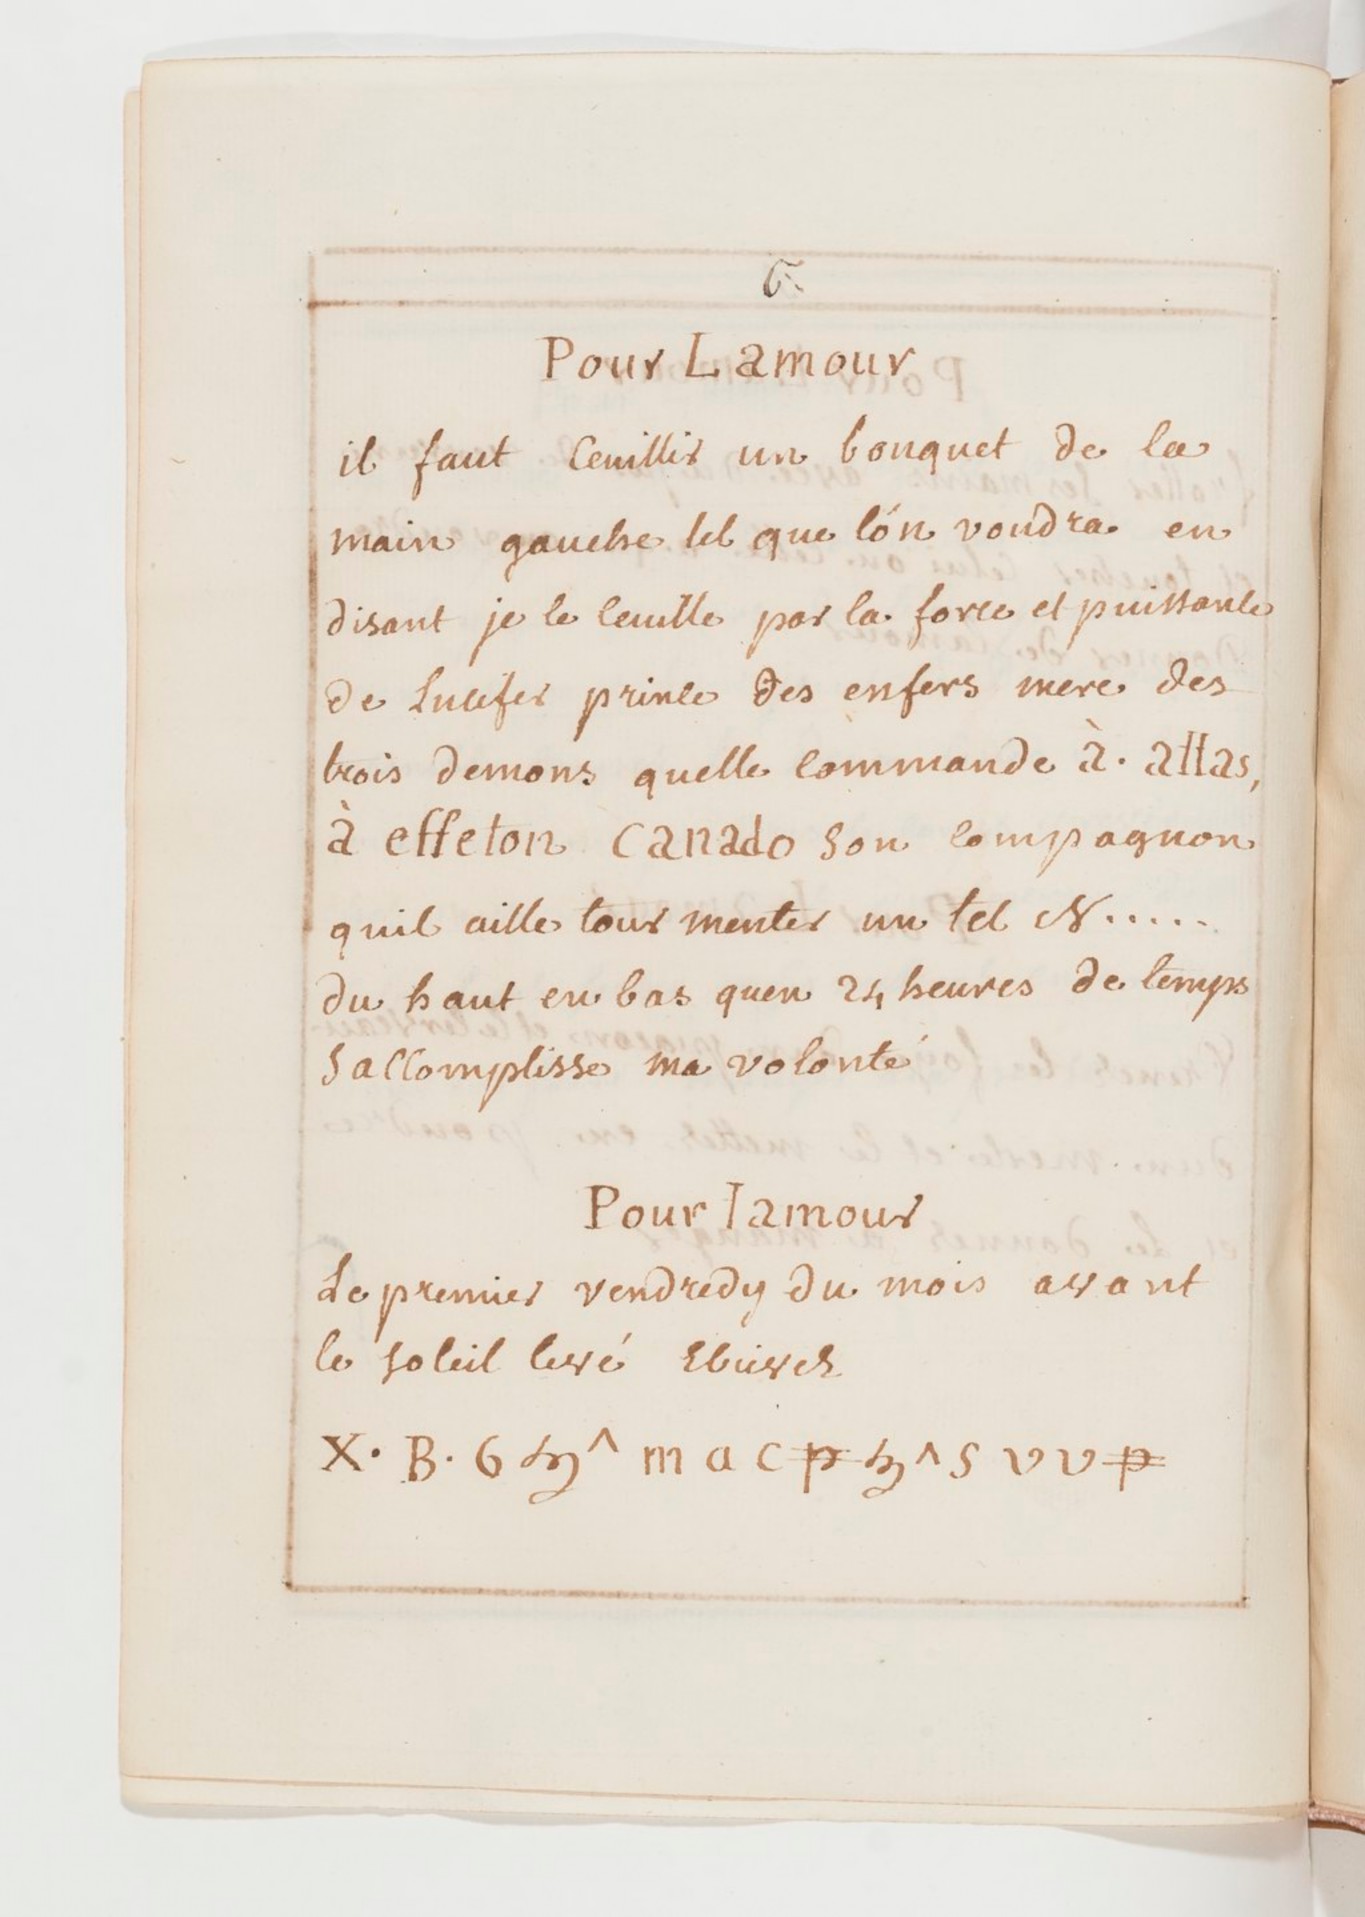 6.
Pour Lamour
il faut Ceuillir un bouquet de la
main gauche tel que lón voudra en
disant je le ceuille par la force et puissance
de Lucifer prince des enfers mere des
trois demons quelle commande à. attas,
à effeton Canado son compagnon
quil aille tour menter un tel N.....
du haut en bas quen 24 heures de temps
Saccomplisse ma volonté
Pour Lamour
Le premier vendredy du mois avant
le soleil levé
X. B. G ^ m a c ^ S v v